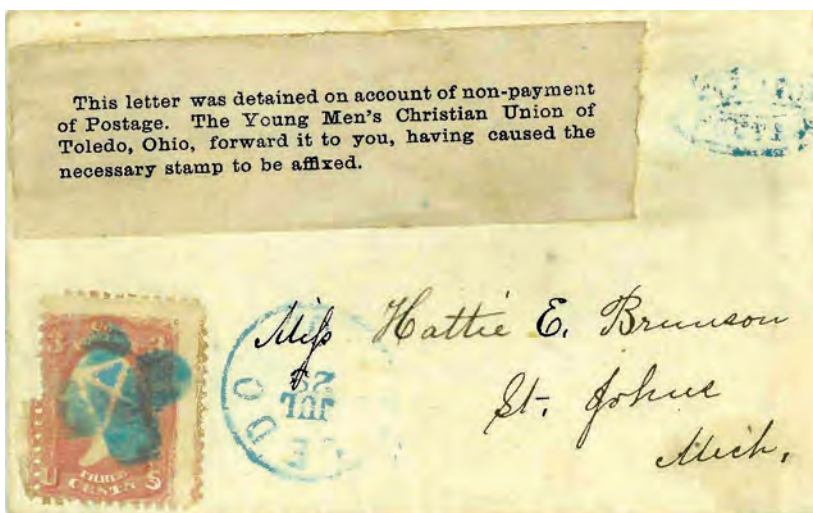 This letter was detained on account of non-payment
of Postage. The Young Men's Christian Union of
Toledo, Ohio, forward it to you, having caused the
necessary stamp to be affixed.
Miss Hattie E. Brunson
St. Johns
Mich.
EDO
JUL
29
U THREE S
CENTS